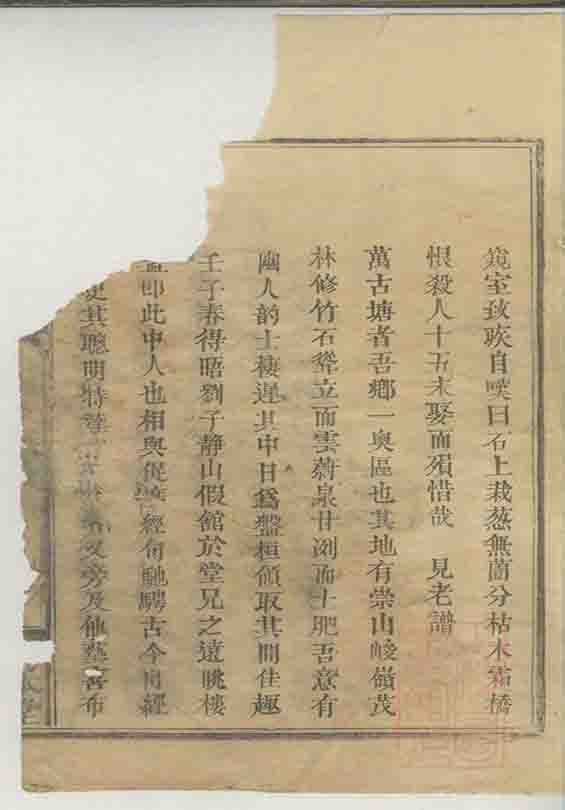 窺室致疾自嘆曰石上栽葱無箇分枯木 橋
恨殺人十五未娶而殞惜哉 見老譜
萬古塘者吾鄉一奥區也其地有崇山峻嶺茂
林修竹石聳立而雲蔚泉甘冽而土肥吾意有
幽人韵士棲遲其中日爲盤桓領取其間佳趣
壬子春得晤劉子静山假館於堂兄之遠眺樓
即此中人也相與從 經 馳騁古今 經
其聰明特 又旁及他藝 布
堂